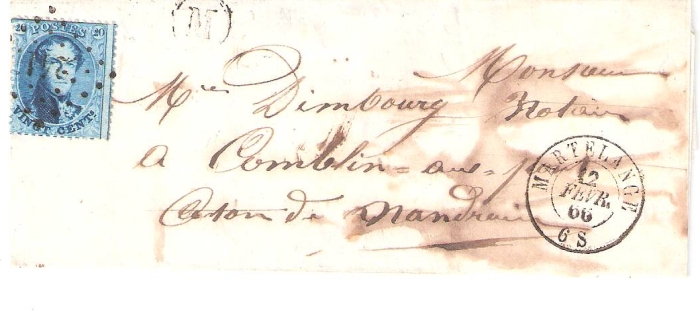 POSTES
20 20
VINGT CENTS
Monsieur
Mtre Dimbourg Notaire
a Comblin=au=pont
Canton de Nandrain
MARTELANGE
12
FEVR.
66
6 S